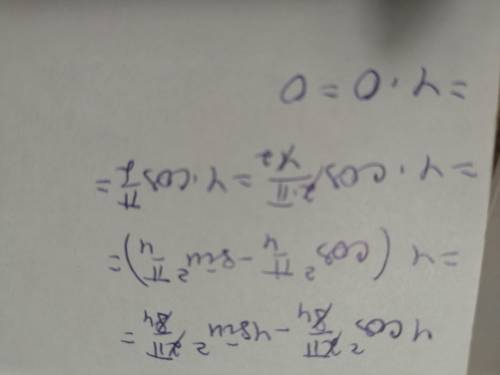 4 cos² 2π/8 4 - 4 sin² 2π/8 4 =
= 4 (cos² π/4 - sin² π/4) =
= 4 · cos 2·π/4 2 = 4 · cos π/2 =
= 4 · 0 = 0